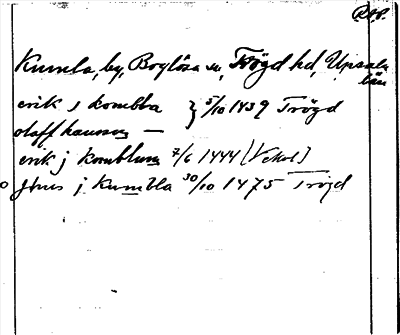 Kumla, by, Boglösa sn, Trögd hd, Upsala
län
erik j kombla } 5/10 1439 Trögd
olaff hansson —
erik j komblum 7/6 1444 [Vckol]
jöns j Kumbla 30/10 1475 Trögd